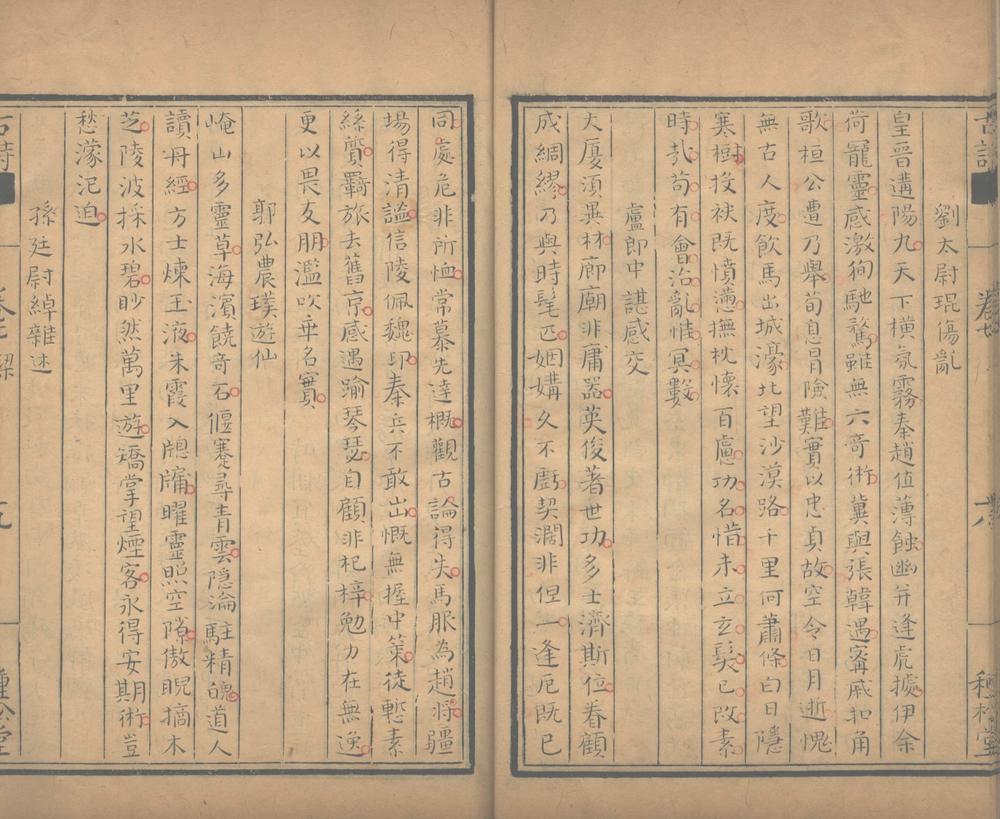 劉太尉琨傷亂
皇晉遘陽九天下橫氛霧秦趙值薄蝕幽并逢虎據伊余
荷寵靈感激徇馳騖雖無六奇術冀與張韓遇甯戚扣角
歌桓公遭乃舉荀息冒險難實以忠貞故空令日月逝愧
無古人度飲馬出城濠北望沙漠路千里何蕭條白日隱
寒樹投袂既憤懣撫枕懷百慮功名惜未立玄髮已改素
時哉苟有會治亂惟冥數
盧郎中諶感交
大厦須異材廊廟非庸器英俊著世功多士濟斯位眷顧
成綢繆乃與時髦匹姻媾久不虧契濶非但一逢厄既已
同處危非所恤常慕先達概觀古論得失馬服為趙將疆
場得清謐信陵佩魏印秦兵不敢出慨無握中策徒慙素
絲質羈旅去舊京感遇踰琴瑟自顧非杞梓勉力在無逸
更以畏友朋濫吹乖名實
郭弘農璞遊仙
崦山多靈草海濱饒奇石偃蹇尋青雲隱淪駐精魄道人
讀丹經方士煉玉液朱霞入牕牖曜靈照空隙傲睨摘木
芝陵波採水碧眇然萬里遊矯掌望煙客永得安期術豈
愁濛汜迫
孫廷尉綽雜述